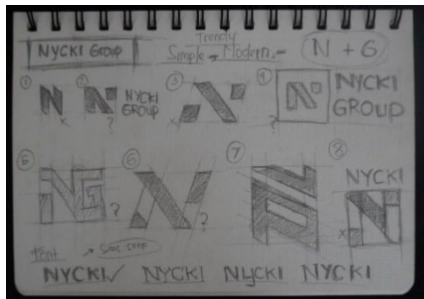 NYCKI GROUP
Trendy
Simple → Modern.-
N + G
1
2
3
4
N
x
N
?
NYCKI
GROUP
x
?
NYCKI
GROUP
5
6
7
8
NG
?
N
?
NYCKI
x
N
Font
→ Sans Serif
NYCKI ✓ NYCKI NYCKI NYCKI